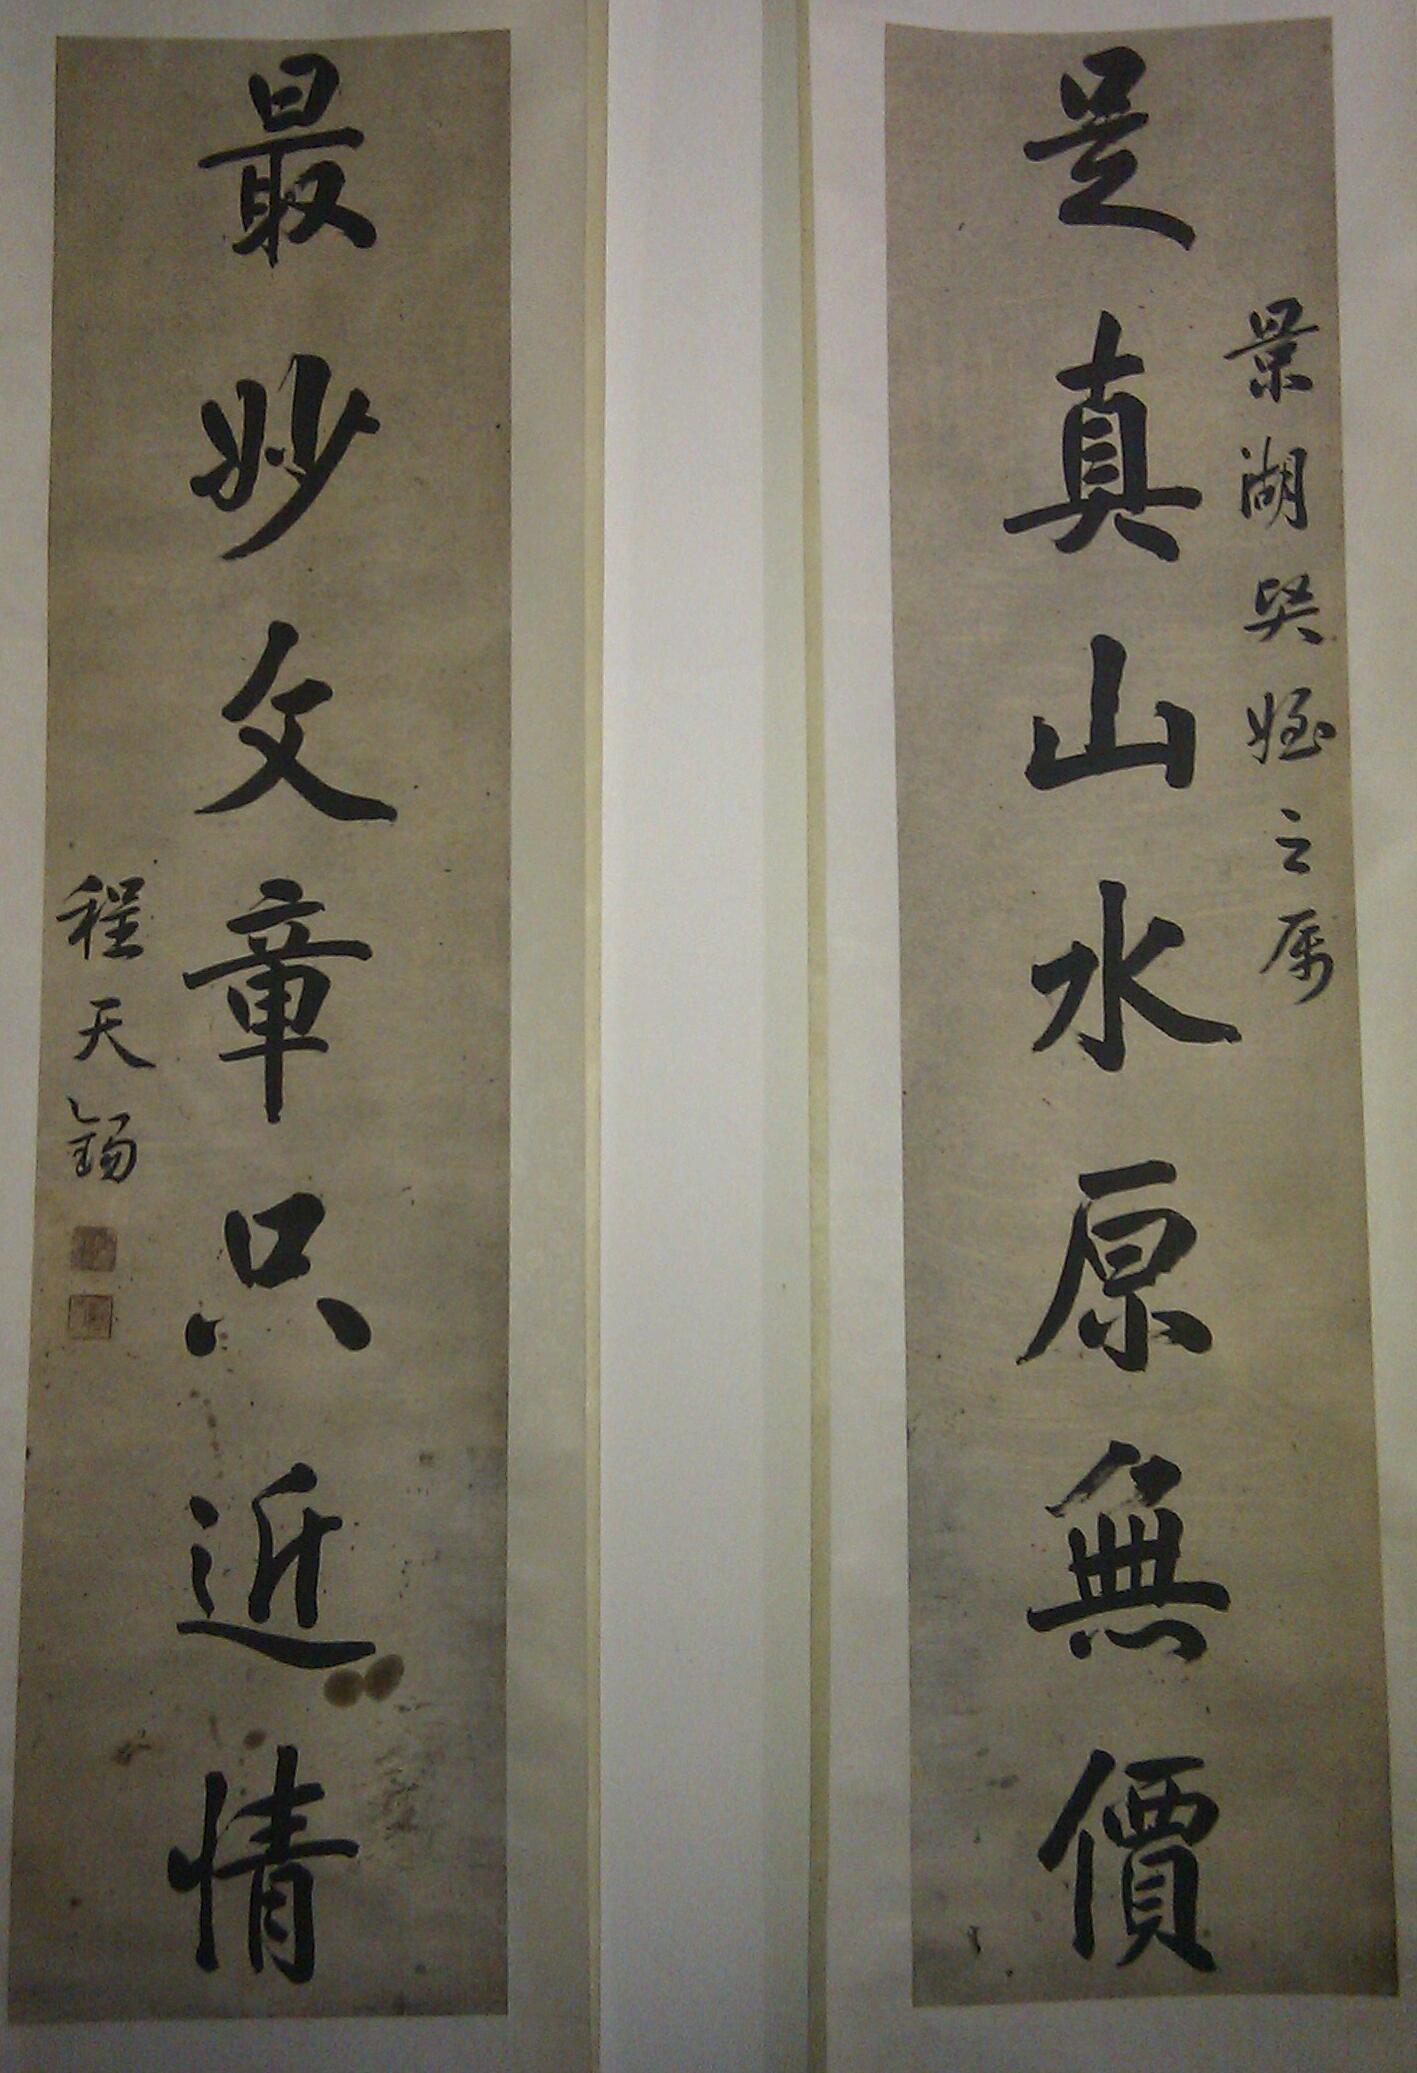 是真山水原無價
景湖賢姪之屬
最妙文章只近情
程天錫